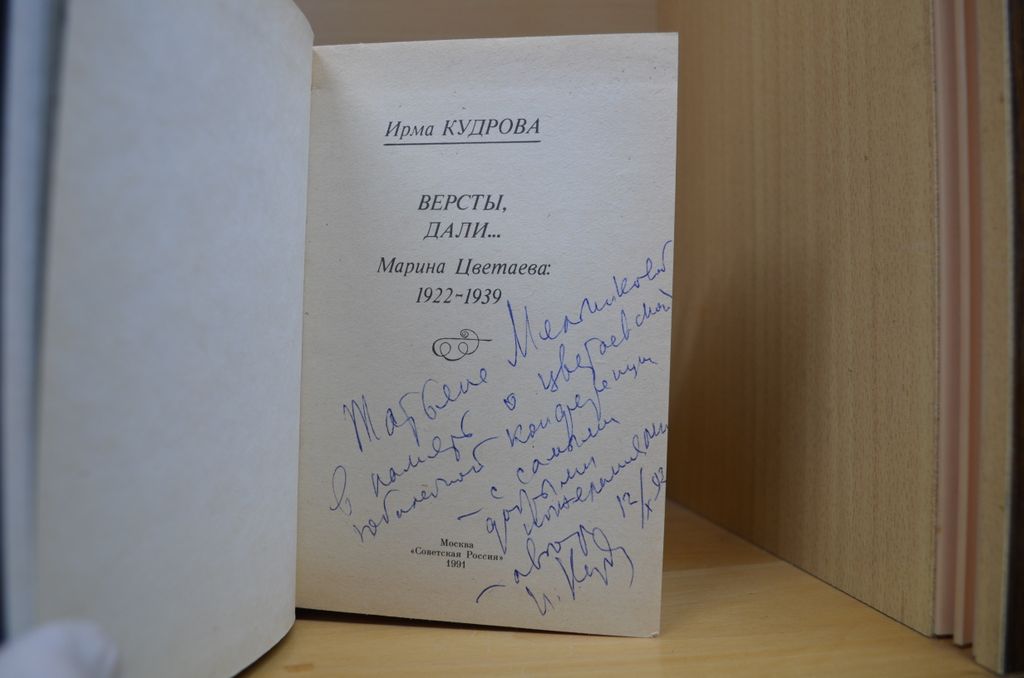 Ирма КУДРОВА
ВЕРСТЫ,
ДАЛИ...
Марина Цветаева:
1922-1939
Татьяне Мельниковой
в память о цветаевской
юбилейной конференции
– с самыми
добрыми
пожеланиями
– автор 12/X 92
И. Кудр
Москва
«Советская Россия»
1991